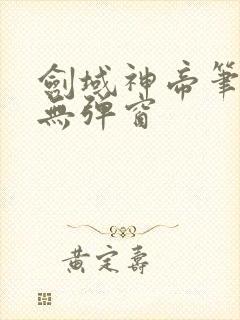 劍域神帝筆
無彈窗
黃定壽